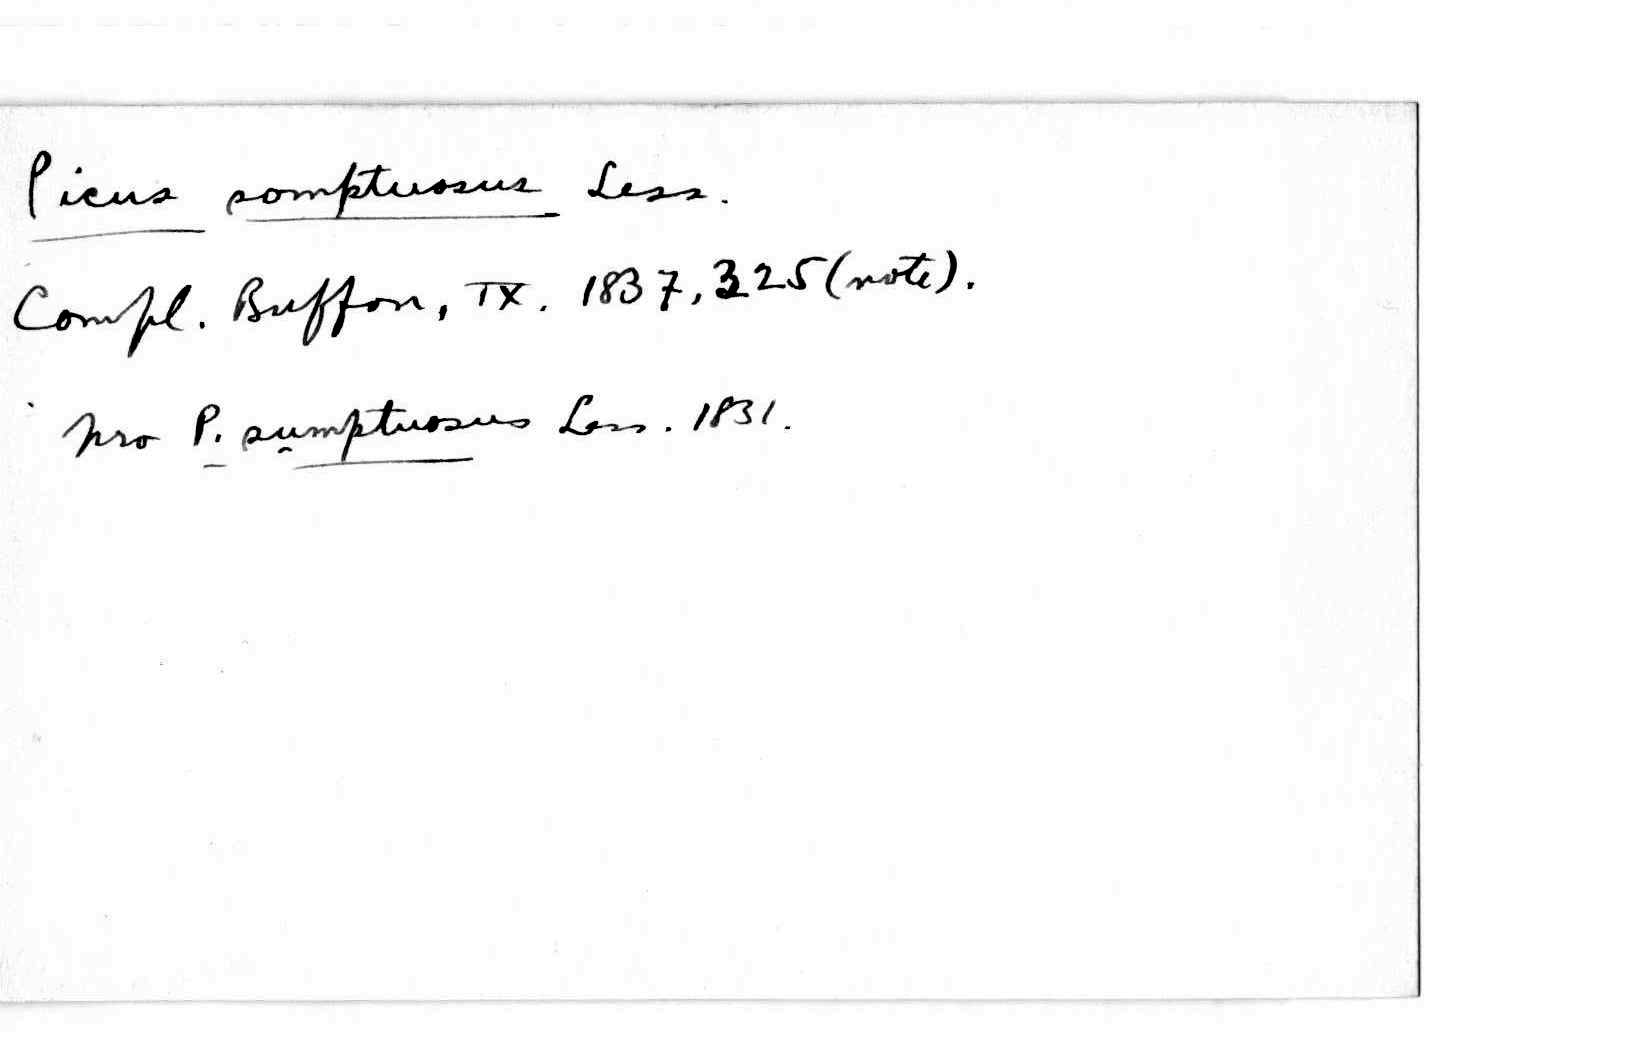 Picus somptuosus Less.
Compl. Buffon, IX. 1837, 325 (note).
pro P. sumptuosus Less. 1831.